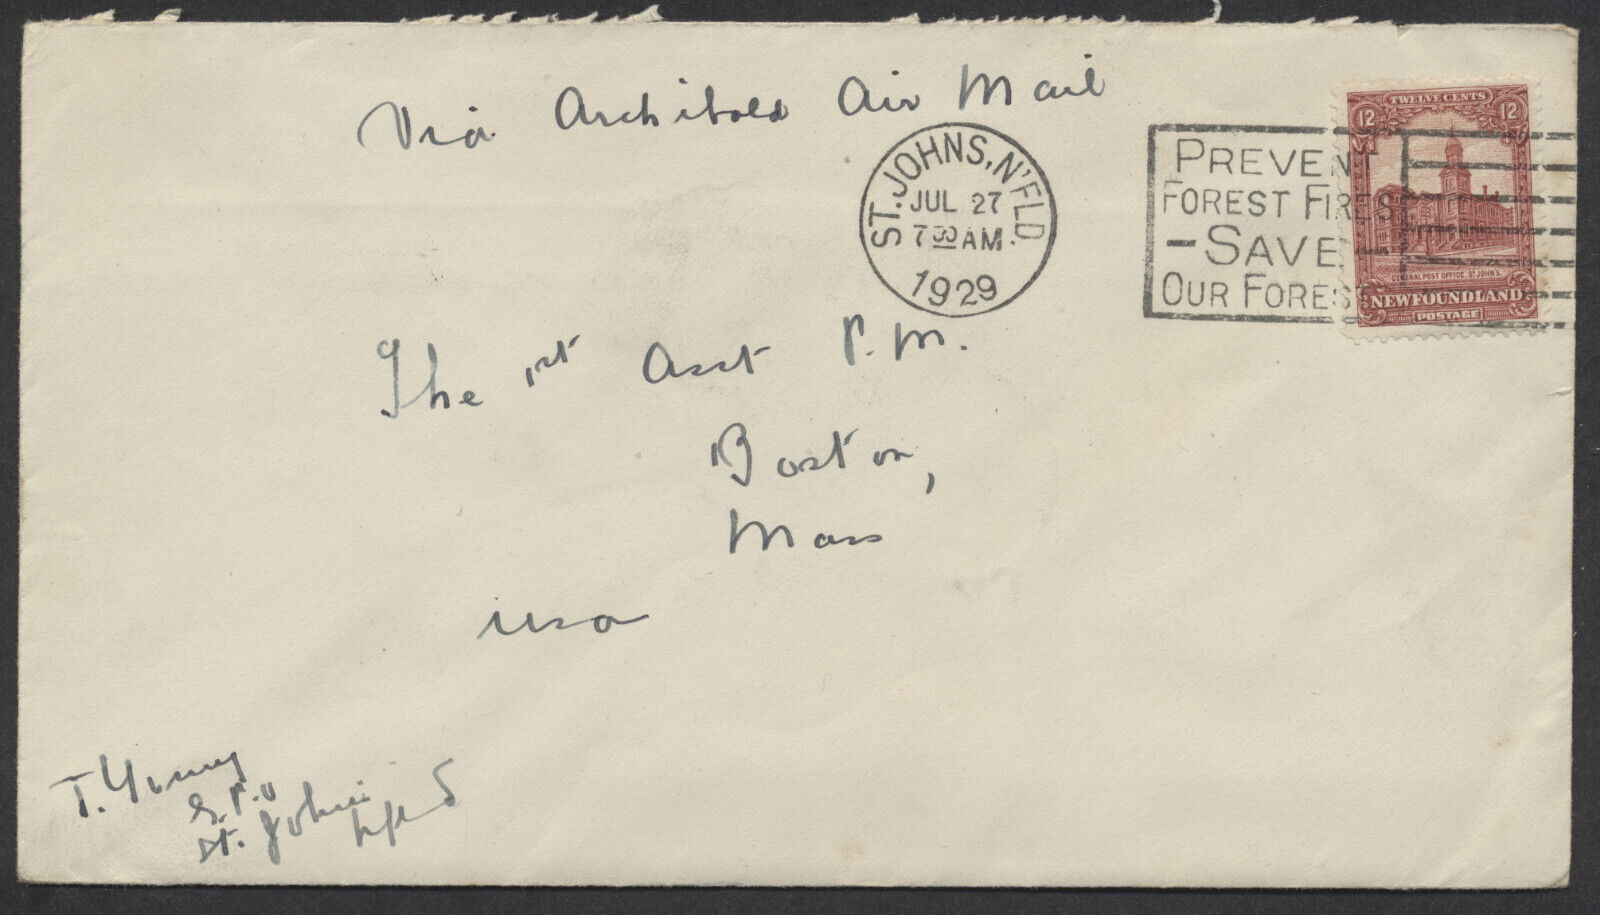 Via Archibald Air Mail
ST. JOHNS, N'FLD.
JUL 27
7 30 AM
1929
PREVENT
FOREST FIRES
-SAVE-
OUR FORES
TWELVE CENTS
12 12
GENERAL POST OFFICE, ST. JOHN'S.
NEWFOUNDLAND
POSTAGE
The 1st Asst P.M.
Boston,
Mass
USA
T. Young
G.P.O
St. John's
Nfld